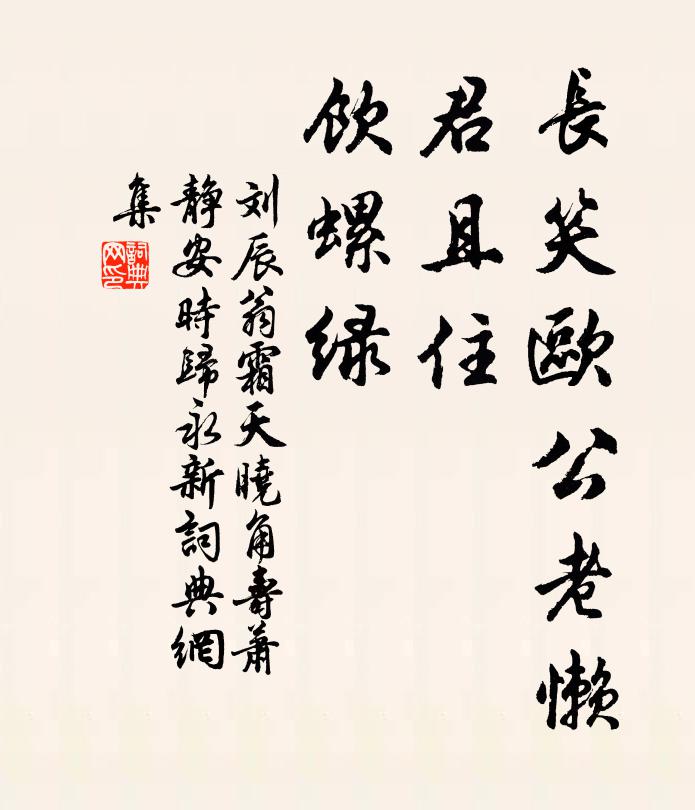 長笑歐公老懶
君且住
飲螺緑
刘辰翁霜天曉角壽蕭
靜安時歸永新詞典網
集
詞典
网印